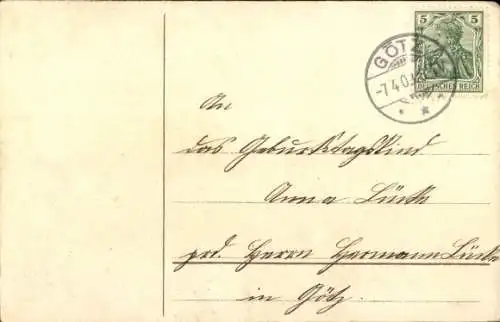 5 5
DEUTSCHES REICH
GÖTZ
-7.4.0
An
das Geburtstagskind
Anna Lücke
prd. Herrn Hermann Lücke
in Götz.